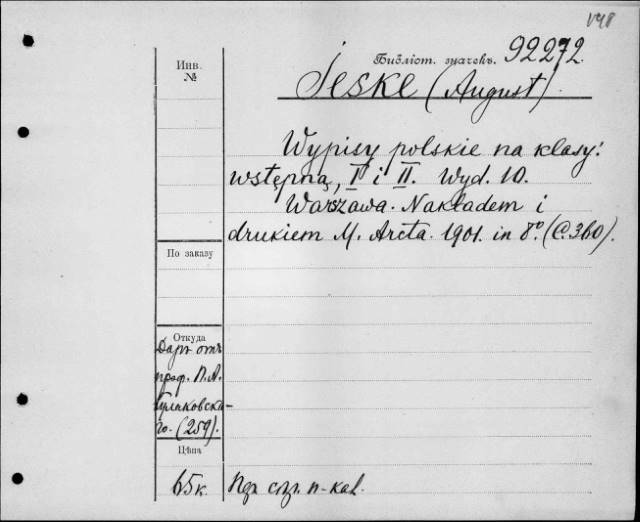 Библіот. значекъ. 92272.
Инв.
№
Jeske (August).
Wypisy polskie na klasy:
wstępną, I i II. Wyd. 10.
Warszawa. Nakładem i
drukiem M. Arcta. 1901. in 8º. (C. 360).
По заказу
Откуда
Даръ отъ
проф. П. А.
Кулаковска-
го. (259).
Цѣна
65к.